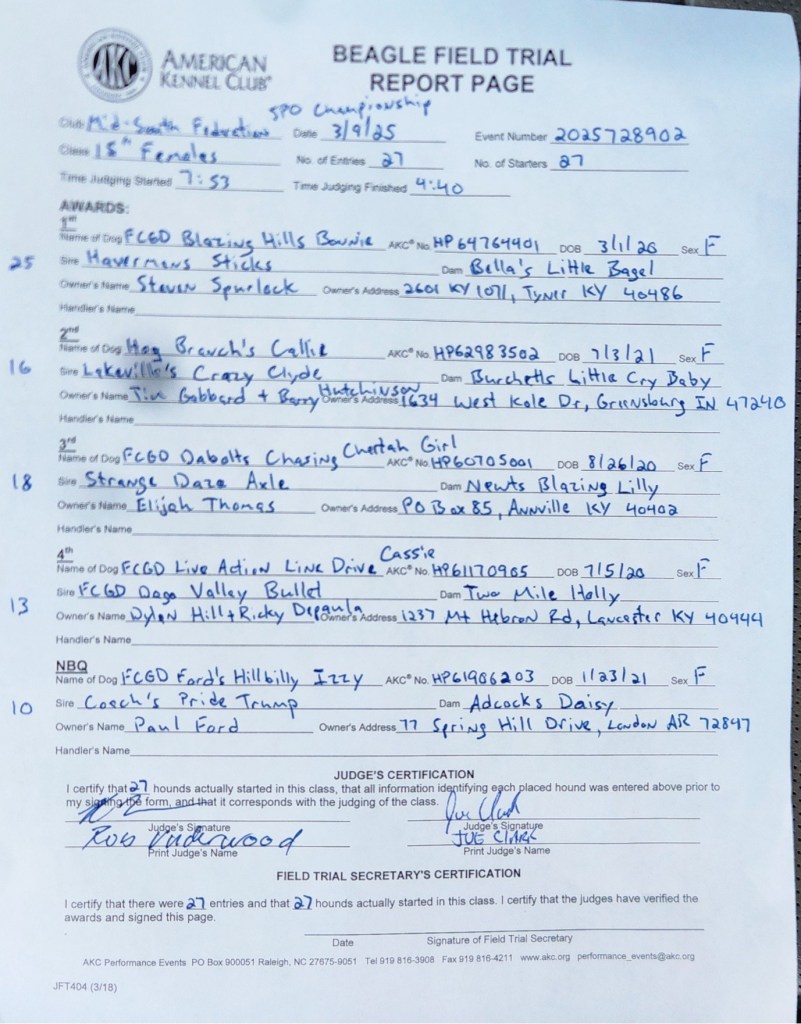 AMERICAN
KENNEL CLUB®
BEAGLE FIELD TRIAL
REPORT PAGE
SPO Championship
Club Mid-South Federation Date 3/9/25 Event Number 2025728902
Class 15" Females No. of Entries 27 No. of Starters 27
Time Judging Started 7:53 Time Judging Finished 4:40
AWARDS:
1st
Name of Dog FCGD Blazing Hills Bonnie AKC® No. HP64764401 DOB 3/1/20 Sex F
25 Sire Havermans Sticks Dam Bella's Little Bagel
Owner's Name Steven Spurlock Owner's Address 2601 KY 1071, Tyner KY 40486
Handler's Name
2nd
Name of Dog Hog Branch's Callie AKC® No. HP62983502 DOB 7/3/21 Sex F
16 Sire Lakeville's Crazy Clyde Dam Burchetts Little Cry Baby
Owner's Name Tim Gabbard + Barry Hutchinson Owner's Address 1634 West Kole Dr, Greensburg IN 47240
Handler's Name
3rd
Name of Dog FCGD Dabolts Chasing Cheetah Girl AKC® No. HP60705001 DOB 8/26/20 Sex F
18 Sire Strange Daze Axle Dam Newts Blazing Lilly
Owner's Name Elijah Thomas Owner's Address PO Box 85, Annville KY 40402
Handler's Name
4th
Name of Dog FCGD Live Action Line Drive Cassie AKC® No. HP61170905 DOB 7/5/20 Sex F
13 Sire FCGD Dago Valley Bullet Dam Two Mile Holly
Owner's Name Dylan Hill + Ricky Depaula Owner's Address 1237 Mt Hebron Rd, Lancaster KY 40444
Handler's Name
NBQ
Name of Dog FCGD Ford's Hillbilly Izzy AKC® No. HP61986203 DOB 1/23/21 Sex F
10 Sire Coach's Pride Trump Dam Adcocks Daisy
Owner's Name Paul Ford Owner's Address 77 Spring Hill Drive, London AR 72847
Handler's Name
JUDGE'S CERTIFICATION
I certify that 27 hounds actually started in this class, that all information identifying each placed hound was entered above prior to
my signing the form, and that it corresponds with the judging of the class.
Joe Clark
Judge's Signature Judge's Signature
Rob Underwood JOE CLARK
Print Judge's Name Print Judge's Name
FIELD TRIAL SECRETARY'S CERTIFICATION
I certify that there were 27 entries and that 27 hounds actually started in this class. I certify that the judges have verified the
awards and signed this page.
Date Signature of Field Trial Secretary
AKC Performance Events PO Box 900051 Raleigh, NC 27675-9051 Tel 919 816-3908 Fax 919 816-4211 www.akc.org performance_events@akc.org
JFT404 (3/18)